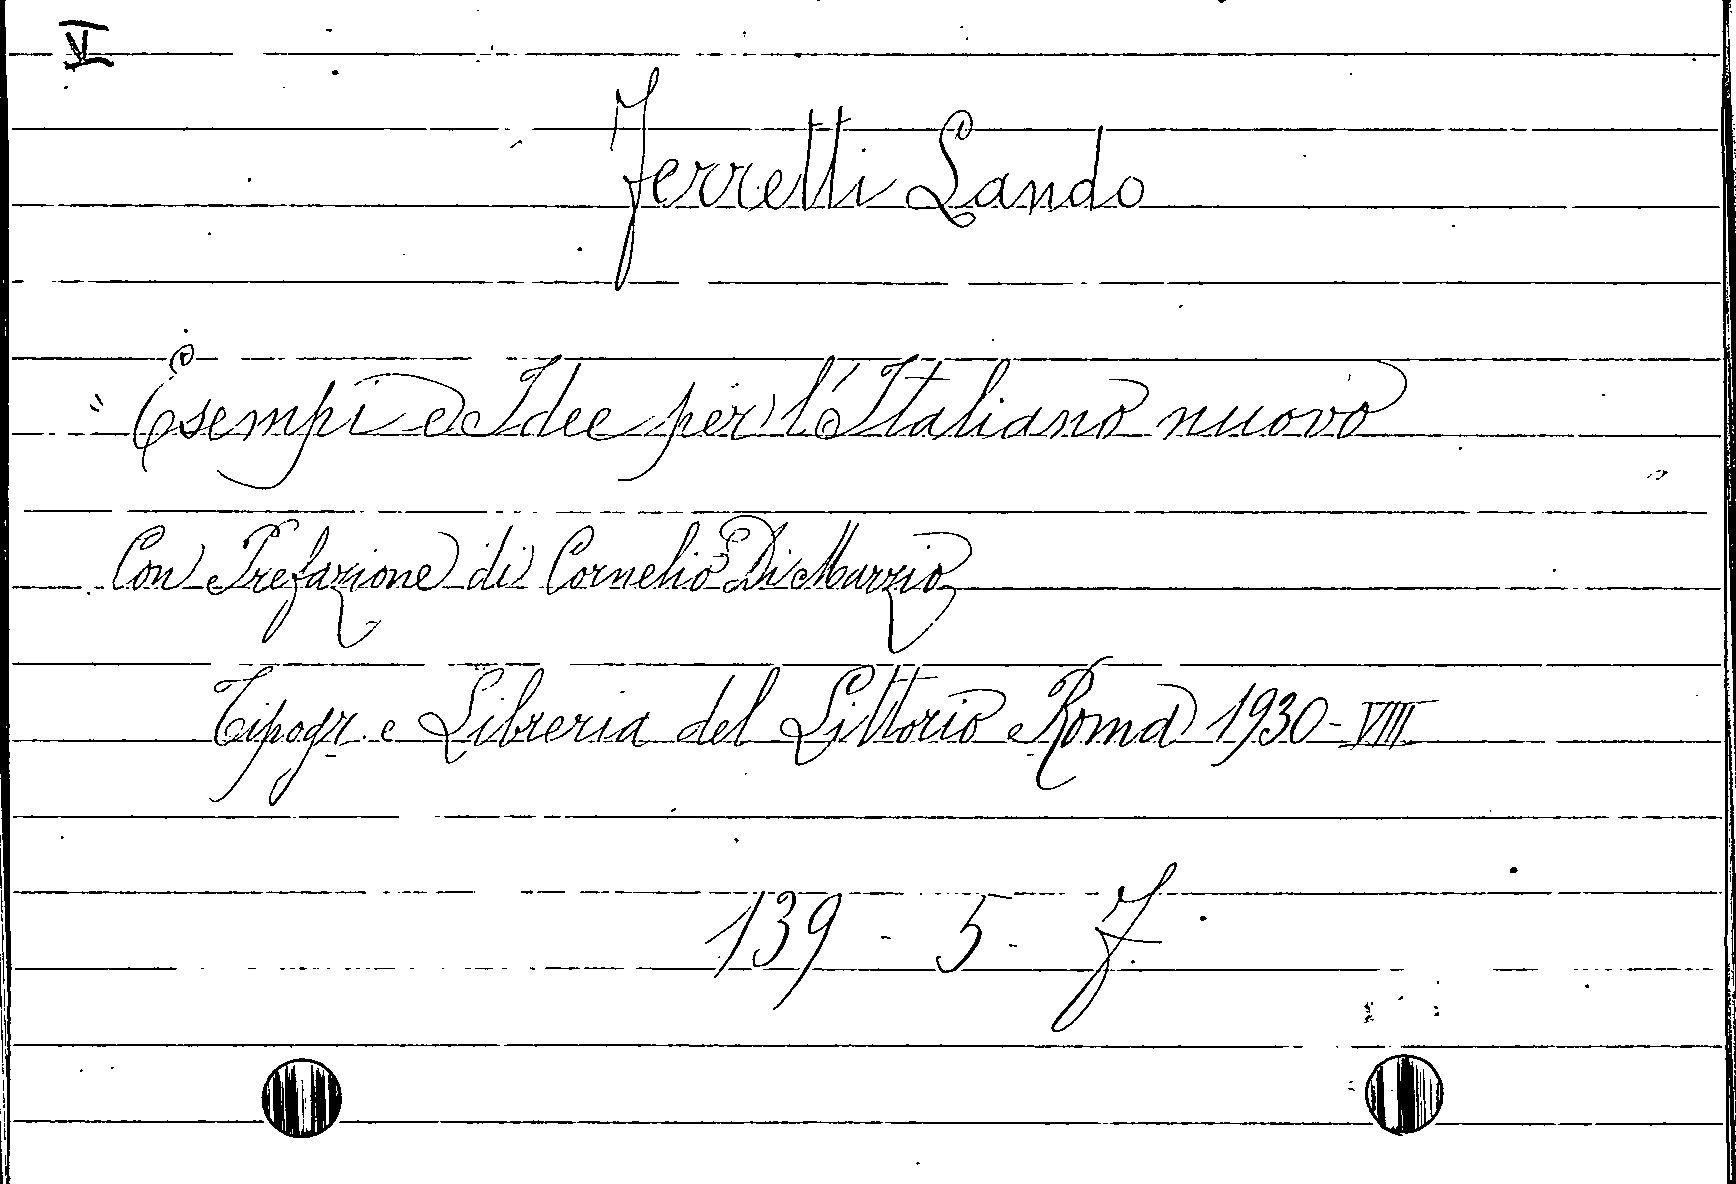 V
Ferretti Lando
"Esempi e Idee per l'Italiano nuovo"
Con Prefazione di Cornelio Di Marzio
Tipogr. e Libreria del Littorio Roma 1930-VIII
139 - 5 - F.